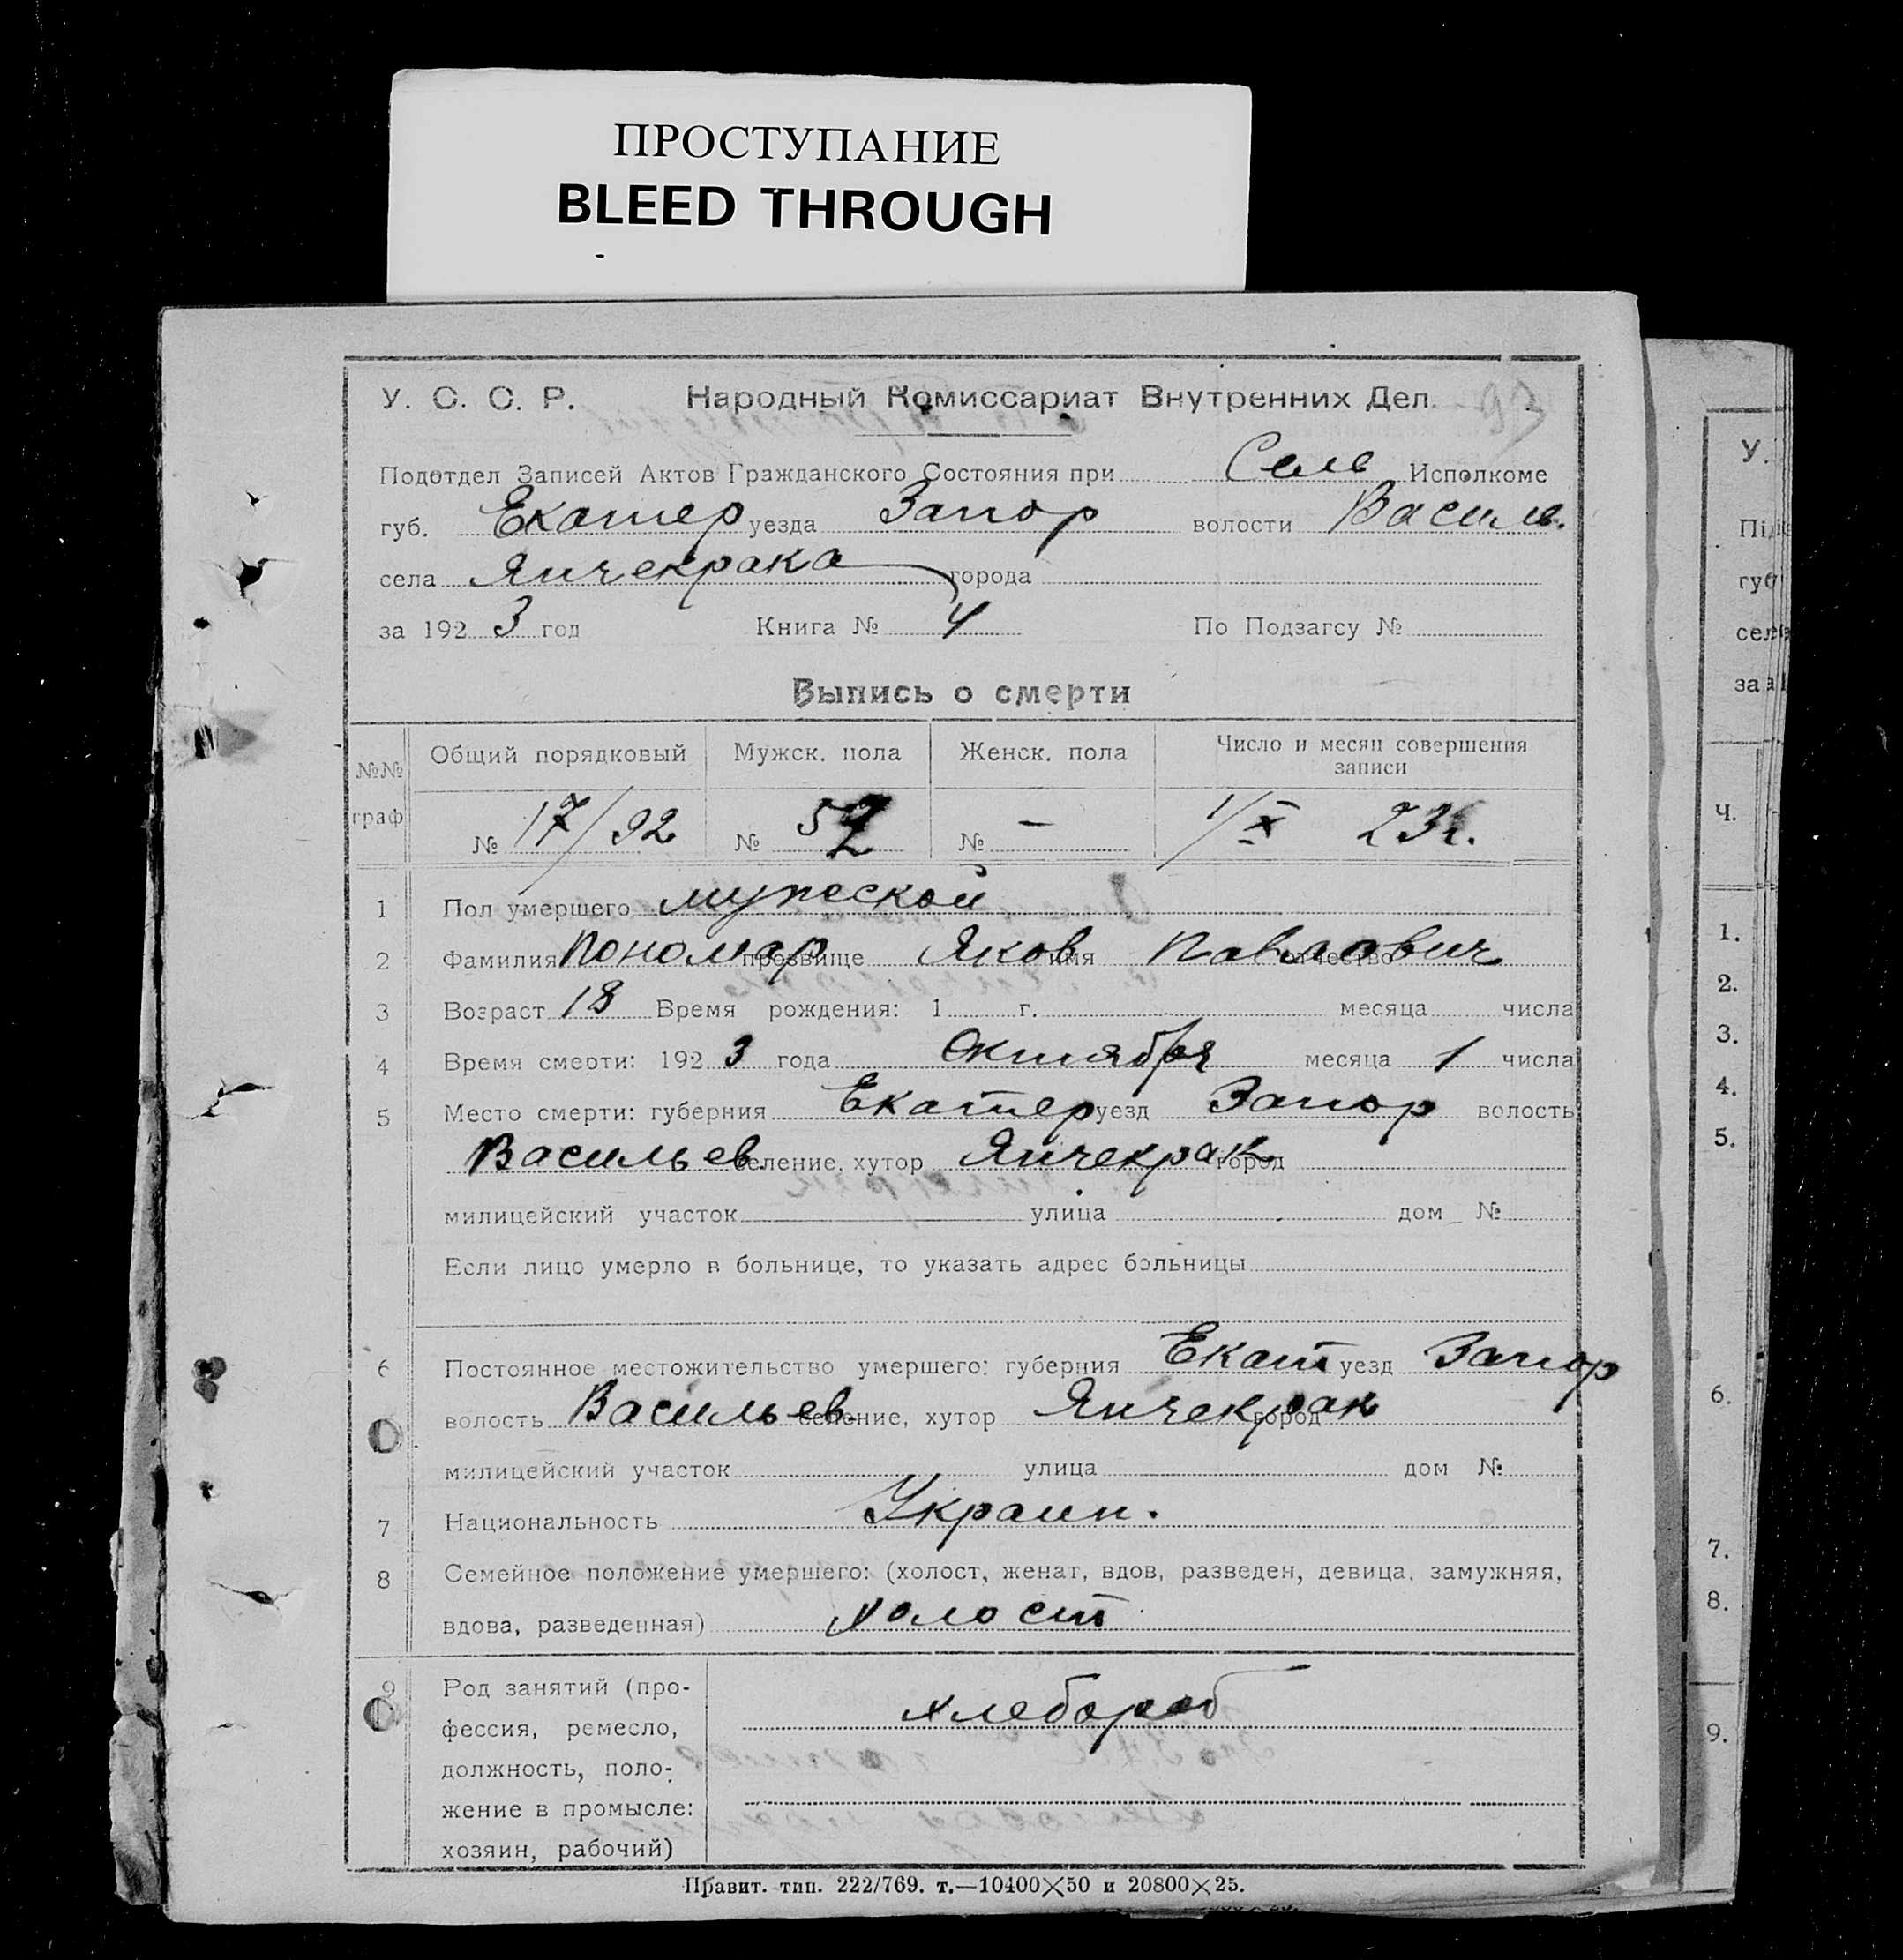 ПРОСТУПАНИЕ
BLEED THROUGH
У. С. С. Р. Народный Комиссариат Внутренних Дел.
Подотдел Записей Актов Гражданского Состояния при Сель Исполкоме
губ. Екатер уезда Запор волости Василь.
села Янчекрака города
за 192 3 год Книга № 4 По Подзагсу №
Выпись о смерти
№№ граф Общий порядковый Мужск. пола Женск. пола Число и месяц совершения записи
№ 17/92 № № — 1/X 23г.
1 Пол умершего мужеской
2 Фамилия Пономар прозвище Яков имя Павлович отчество
3 Возраст 18 Время рождения: 1 г. месяца числа
4 Время смерти: 192 3 года Октября месяца 1 числа
5 Место смерти: губерния Екатер уезд Запор волость
Васильев. селение, хутор Янчекрак город
милицейский участок улица дом №
Если лицо умерло в больнице, то указать адрес больницы
6 Постоянное местожительство умершего: губерния Екат уезд Запор
волость Васильев. селение, хутор Янчекрак город
милицейский участок улица дом №
7 Национальность Украин.
8 Семейное положение умершего: (холост, женат, вдов, разведен, девица, замужняя,
вдова, разведенная) холост
9 Род занятий (про-
фессия, ремесло,
должность, поло-
жение в промысле:
хозяин, рабочий)
хлебороб
Правит. тип. 222/769. т.—10400×50 и 20800×25.
У.
Пі
губ
сел
за
Ч.
1.
2.
3.
4.
5.
6.
7.
8.
9.